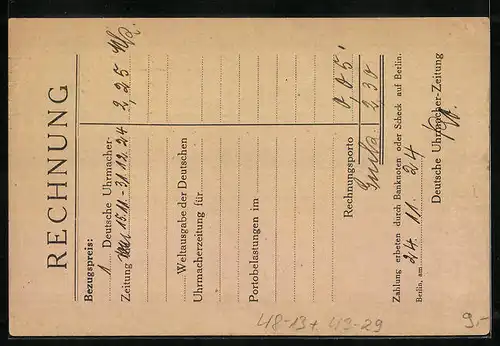 RECHNUNG
Bezugspreis:
1 Deutsche Uhrmacher-
Zeitung 15.11.-31.12.24 2,25
Weltausgabe der Deutschen
Uhrmacherzeitung für
Portobelastungen im
Rechnungsporto 0,05
2,30
Zahlung erbeten durch Banknoten oder Scheck auf Berlin.
Berlin, am 24. 11. 24
Deutsche Uhrmacher-Zeitung
48-13+ 49-29
9,-